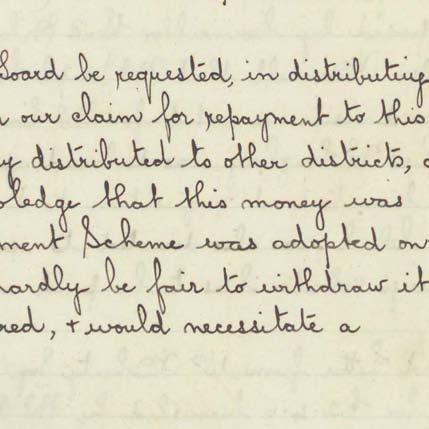 Board be requested, in distributing
our claim for repayment to this
distributed to other districts,
ledge that this money was
ment Scheme was adopted on
hardly be fair to withdraw it
red, + would necessitate a